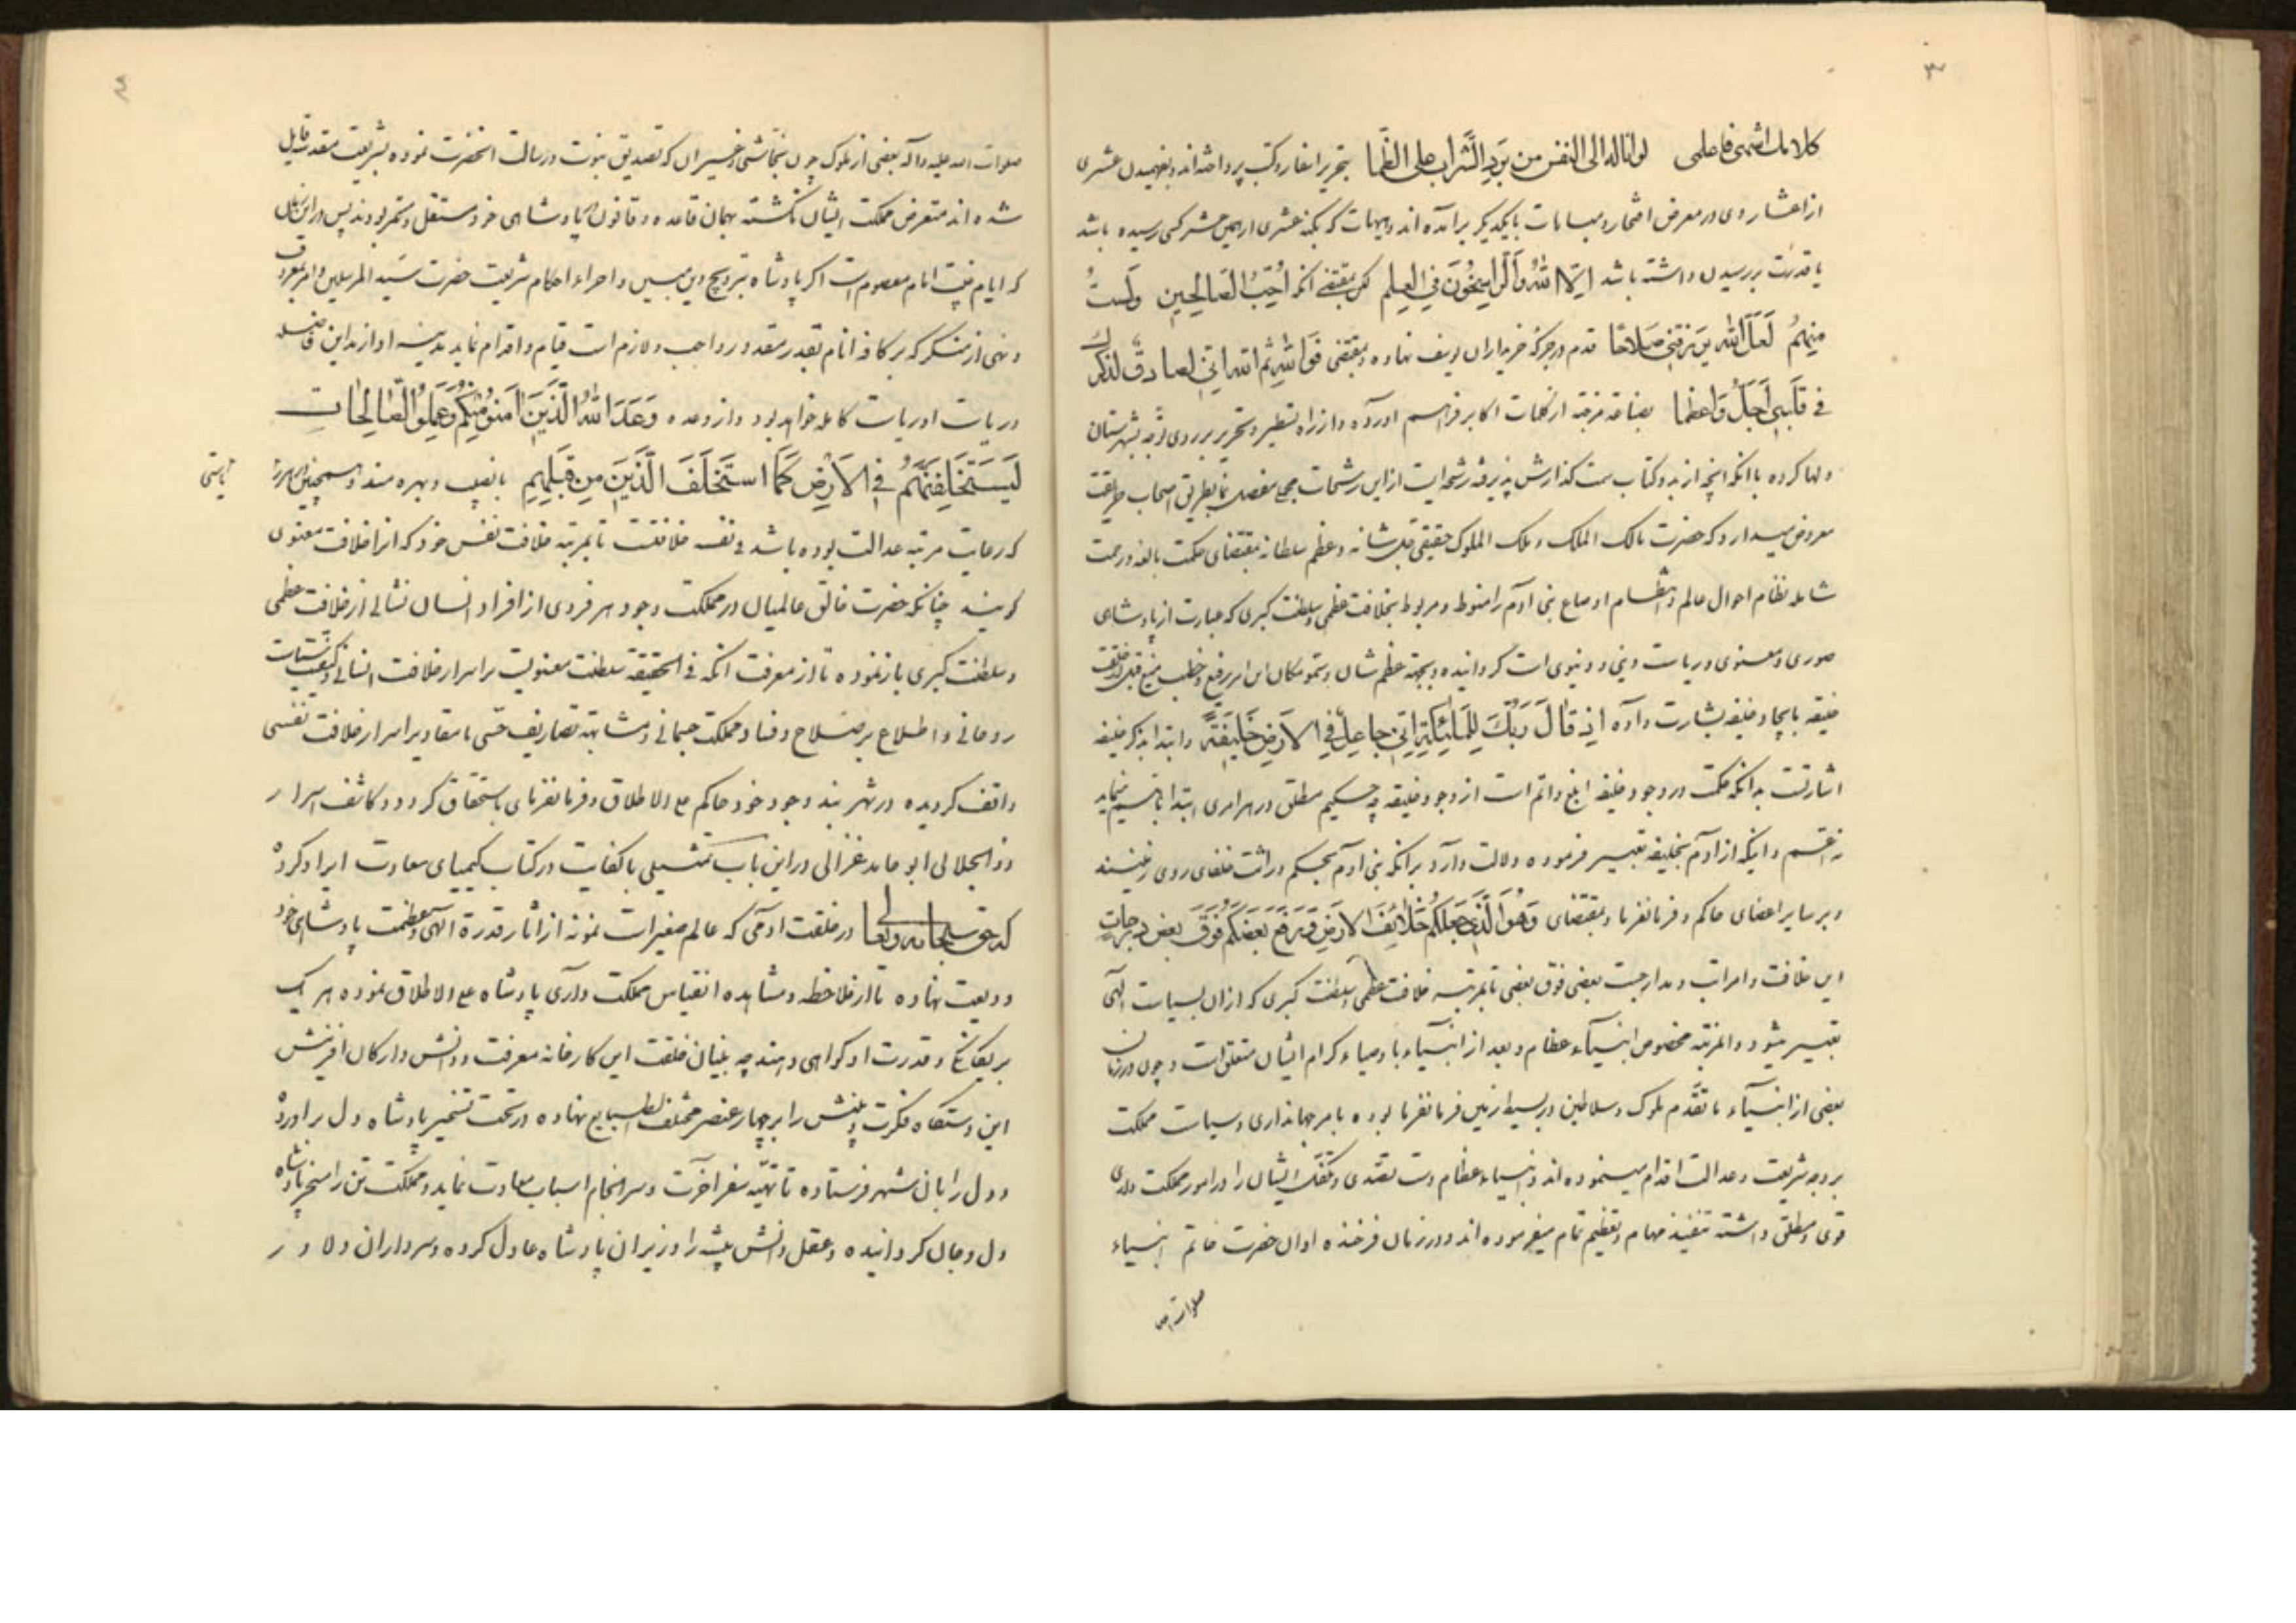 ٣
کلامك اشهی فاعلمی لو اناله الی النفس من برد الشراب علی الظما بتحریر اسفار و کتب پرداخته‌اند و بفهمیدن عشری
از اعشار وی در معرض افتخار و مباهات با یکدیگر برآمده‌اند و هیهات که بکنه عشری از همین عشر کسی رسیده باشد
یا قدرت بر رسیدن داشته باشد اِلّا اللهُ وَالرّاسِخُونَ فِی العِلمِ لکن بمقتضی انکه اُحِبُّ الصّالِحینَ وَلَستُ
مِنهُم لَعَلَّ اللهَ یَرزُقُنی صَلاحًا قدم در جرگه خریداران یوسف نهاده و بمقتضی فَوَاللهِ ثُمَّ اللهِ اِنّی لصادِقٌ لذکرك
فی قَلبی اَجَلُّ وَاعظما بضاعة مزجاة از کلمات اکابر فراهم اورده و از راه تسطیر و تحریر بر روی توجه شهرستان
دلها کرده با انکه انچه از بدو کتاب سمت گذارش پذیرفته رشحه‌ایست از این رشحات مجمع مفصل نما بطریق اصحاب طریقت
معروض میدارد که حضرت مالک الملک و ملک الملوک حقیقی جل شانه و عظم سلطانه بمقتضای حکمت بالغه و رحمت
شامله نظام احوال عالم و انتظام اوضاع بنی آدم را منوط و مربوط بخلافت عظمی و سلطنت کبری که عبارت از پادشاهی
صوری و معنوی و ریاست دینی و دنیوی است گردانیده و بجهة عظم شان و سمو مکان این امر رفیع و خطب منیع قبل از خلقت
خلیقه بایجاد خلیفه بشارت داده اِذ قالَ رَبُّكَ لِلمَلئِكَةِ اِنّی جاعِلٌ فِی الاَرضِ خَلیفَةً و ابتدا بذکر خلیفه
اشارتست بدانکه حکمت در وجود خلیفه ابلغ و اتم است از وجود خلیقه چه حکیم مطلق در هر امری ابتدا باهم مینماید
نه اقسم و اینکه از آدم بخلیفه تعبیر فرموده دلالت دارد برانکه بنی آدم بحکم وراثت خلفای روی زمینند
و بر سایر اعضای حاکم و فرمانفرما و بمقتضای وَهُوَ الَّذی جَعَلَكُم خَلائِفَ الاَرضِ وَ رَفَعَ بَعضَكُم فَوقَ بَعضٍ دَرَجاتٍ
این خلافت را مراتب و مدارجست بعضی فوق بعضی تا بمرتبه خلافت عظمی و سلطنت کبری که از ان بسیاست الهی
تعبیر میشود و المرتبه مخصوص انبیآء عظام و بعد از انبیآء باوصیاء کرام ایشان متعلق است و چون در زمان
بعضی از انبیآء ما تقدم ملوک و سلاطین در بسیط زمین فرمانفرما بوده بامر جهانداری و سیاست مملکت
بر وجه شریعت و عدالت اقدام مینموده‌اند و انبیاء عظام دست تصدی و تکفل ایشان را در امور مملکت داری
قوی و مطلق داشته تنفیذ مهام و تعظیم تمام میفرموده‌اند و در زمان فرخنده اوان حضرت خاتم انبیاء
صلوات الله
٤
صلوات الله علیه و آله بعضی از ملوک چون نجاشی و غیر ان که تصدیق نبوت و رسالت انحضرت نموده بشریعت مقدسه قایل
شده‌اند متعرض مملکت ایشان نگشته بهمان قاعده و قانون بپادشاهی خود مستقل و مستمر بودند پس در این زمان
که ایام غیبت امام معصوم است اگر پادشاه بترویج دین مبین و اجراء احکام شریعت حضرت سید المرسلین و امر بمعروف
و نهی از منکر که بر کافه انام بقدر مقدور واجب و لازم است قیام و اقدام نماید مدینه او از مداین فاضله
و ریاست او ریاست کامله خواهد بود و از وعده وَعَدَ اللهُ الَّذینَ امَنوا مِنكُم وَعَمِلُوا الصّالِحاتِ
لَیَستَخلِفَنَّهُم فِی الاَرضِ كَمَا استَخلَفَ الَّذینَ مِن قَبلِهِم با نصیب و بهره مند و همچنین هر مرتبه
که رعایت مرتبه عدالت بوده باشد فی نفسه خلافتست تا بمرتبه خلافت نفس خود که انرا خلافت معنوی
گویند چنانکه حضرت خالق عالمیان در مملکت وجود هر فردی از افراد انسان نشانی از خلافت عظمی
و سلطنت کبری باز نموده تا از معرفت انکه فی الحقیقة سلطنت معنویست بر اسرار خلافت انسانی و کیفیت
روحانی و اطلاع بر صلاح و فساد مملکت جسمانی و مشابهت تصاریف حسی با مقادیر اسرار خلافت نفسی
واقف گردیده در شهر بند وجود خود حاکم علی الاطلاق و فرمانفرمای باستحقاق گردد و کاشف اسرار
ذو الجلالی ابو حامد غزالی در این باب تمثیلی باکفایت در کتاب کیمیای سعادت ایراد کرده
که حق سبحانه و تعالی در خلقت آدمی که عالم صغیر است نمونه از اثار قدرة الهی و عظمت پادشاهی خود
ودیعت نهاده تا از ملاحظه و مشاهده انقیاس مملکت داری پادشاه علی الاطلاق نموده هر یک
بر یگانگی و قدرت او گواهی دهند چه بنیان خلقت این کارخانه معرفت و دانش و ارکان افرینش
این دستگاه فکرت و بینش را بر چهار عنصر مختلف الطبایع نهاده در تحت تسخیر پادشاه دل براورده
و دل را بان شهر فرستاده تا تهیه سفر اخرت و سر انجام اسباب سعادت نماید و مملکت تن را مسخر پادشاه
دل و جان گردانیده و عقل دانش پیشه را وزیر ان پادشاه عادل کرده و سرداران دلاور